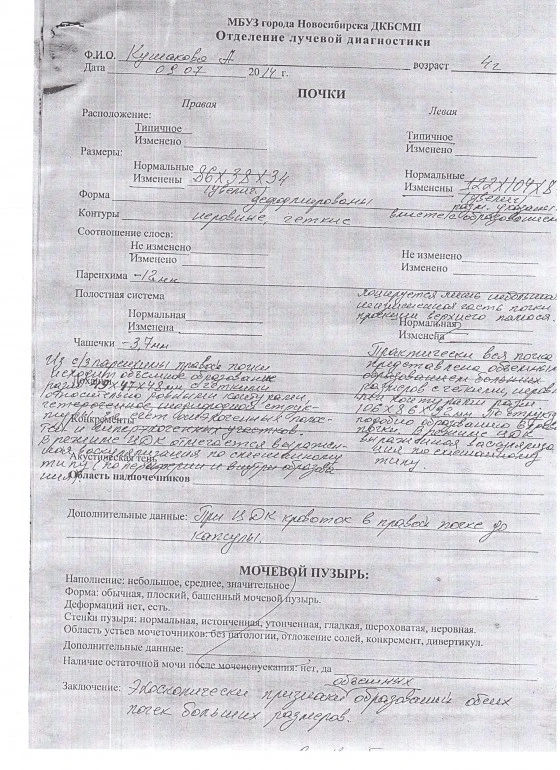 МБУЗ города Новосибирска ДКБСМП
Отделение лучевой диагностики
Ф.И.О. Кушакова А возраст 4г
Дата 09 07 2014 г.
ПОЧКИ
Правая Левая
Расположение:
Типичное Типичное
Изменено Изменено
Размеры:
Нормальные Нормальные
Изменены 86х38х34 Изменены 122х104х8
(увелич.) (увелич)
Форма деформированы разм. указаны
Контуры неровные, четкие вместе с образованием
Соотношение слоев:
Не изменено Не изменено
Изменено Изменено
Паренхима -12мм
Полостная система
Лоцируется лишь небольшая
неизмененная часть почки
проекции верхнего полюса.
Нормальная Нормальная
Изменена Изменена
Чашечки -3,7мм
Из с/з паренхимы правой почки
исходит объемное образование
разм. 49х47х48мм с четкими
относительно ровными контурами,
Лоханки
Конкременты
в режиме ЦДК отмечается
васкуляризация по смешанному
Акустическая тень
типу (по периферии и внутри образова
ния)
Практически вся почка
представлена объемным
образованием больших
размеров с четкими, неровны
ми контурами разм.
106х86х92мм По структуре
подобно образованию в правой
почки в режиме ЦДК
выраженная васкуляриза
ция по смешанному
типу.
Область надпочечников
Дополнительные данные: При ЦДК кровоток в правой почке до
капсулы.
МОЧЕВОЙ ПУЗЫРЬ:
Наполнение: небольшое, среднее, значительное
Форма: обычная, плоский, башенный мочевой пузырь.
Деформаций нет, есть.
Стенки пузыря: нормальная, истонченная, утонченная, гладкая, шероховатая, неровная.
Область устьев мочеточников: без патологии, отложение солей, конкремент, дивертикул.
Дополнительные данные:
Наличие остаточной мочи после мочеиспускания: нет, да
объемных
Заключение: Эхоскопически признаки образований обеих
почек больших размеров.